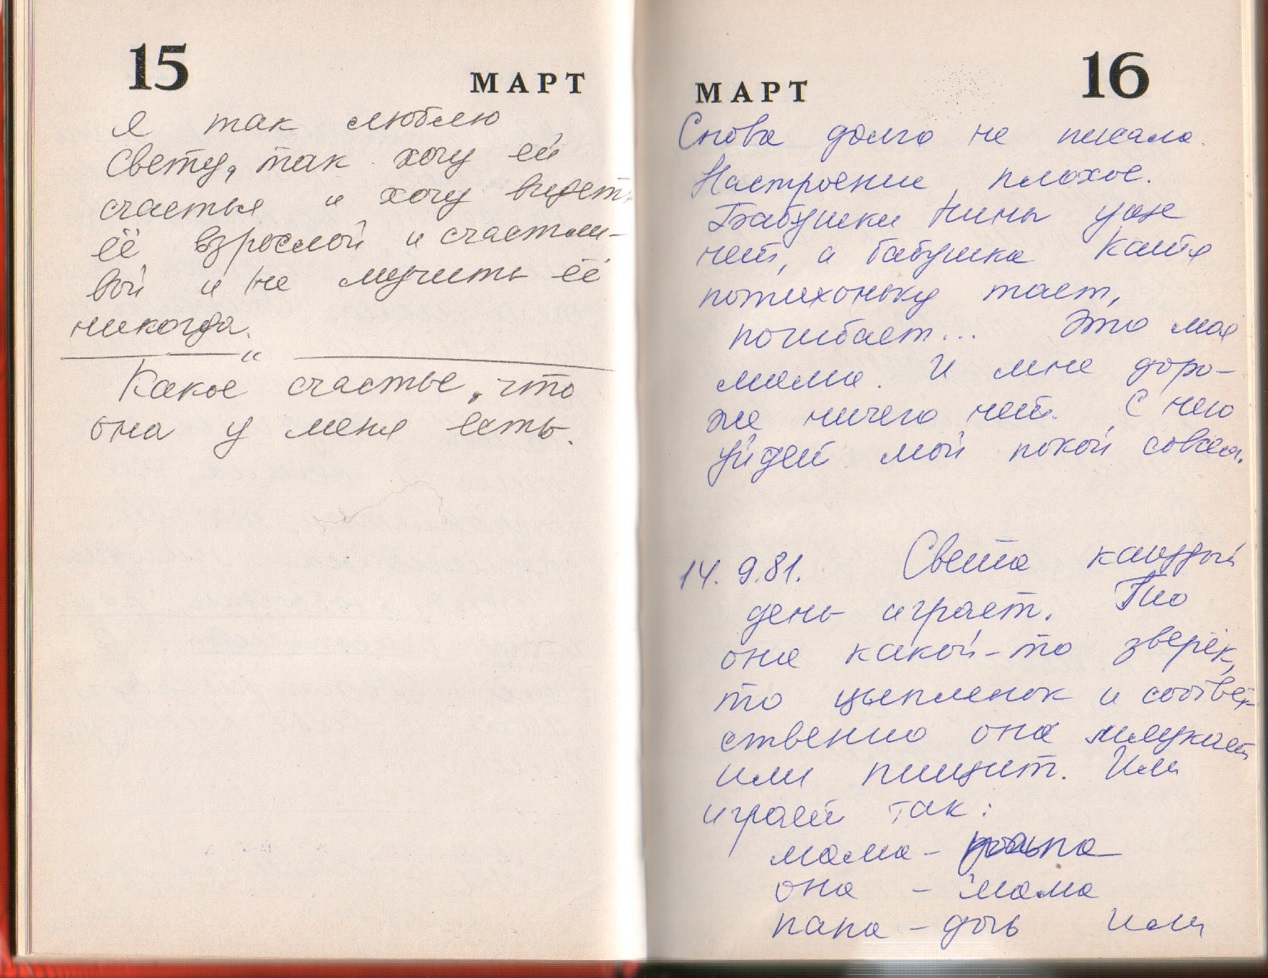 15
МАРТ
Я так люблю
Свету, так хочу ей
счастья и хочу видеть
её взрослой и счастли-
вой и не мучить её
никогда.
"
Какое счастье, что
она у меня есть.
МАРТ
16
Снова долго не писала.
Настроение плохое.
Бабушки Нины уже
нет, а бабушка Катя
потихоньку тает,
погибает... Это моя
мама. И мне доро-
же ничего нет. С нею
уйдет мой покой совсем.
14.9.81. Света каждый
день играет. То
она какой-то зверёк,
то цыпленок и соответ-
ственно она мяукает
или пищит. Или
играет так:
мама - папа
она - мама
папа - дочь Или